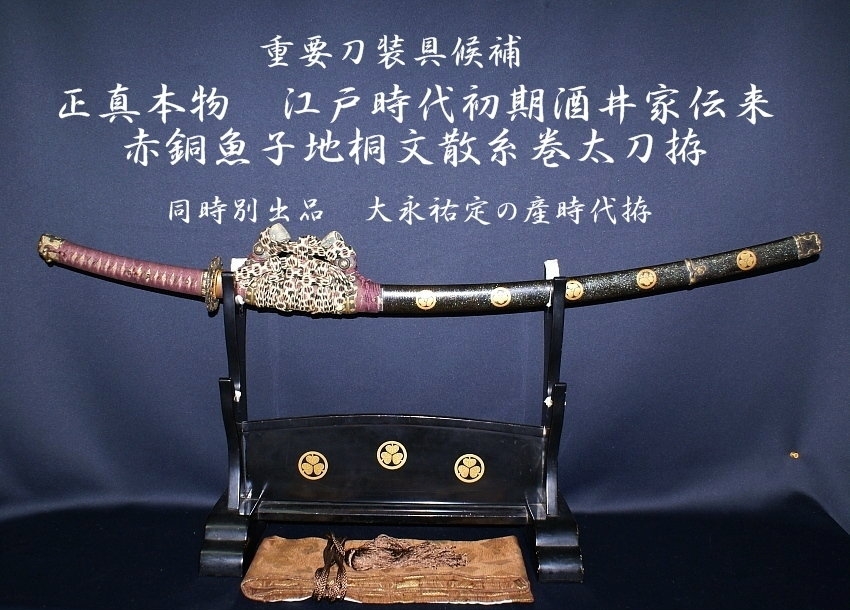 重要刀装具候補
正真本物　江戸時代初期酒井家伝来
赤銅魚子地桐文散糸巻太刀拵
同時別出品　大永祐定の産時代拵